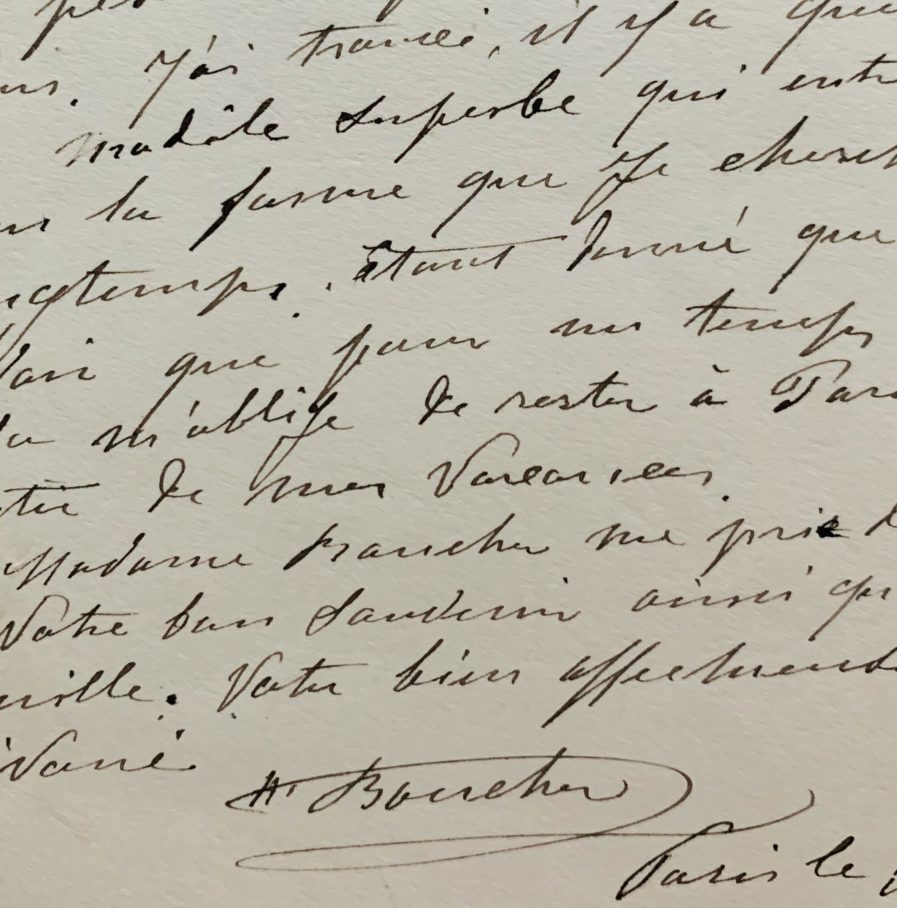 J'ai trouvé, il y a que
modèle superbe qui entr
la forme que je cherch
ngtemps. étant donné que
que pour un temps
m'oblige de rester à Par
de mes vacances
Madame Boucher me prie d
Votre bon souvenir ainsi qu
mille. Votre bien affectueus
H. Boucher
Paris le